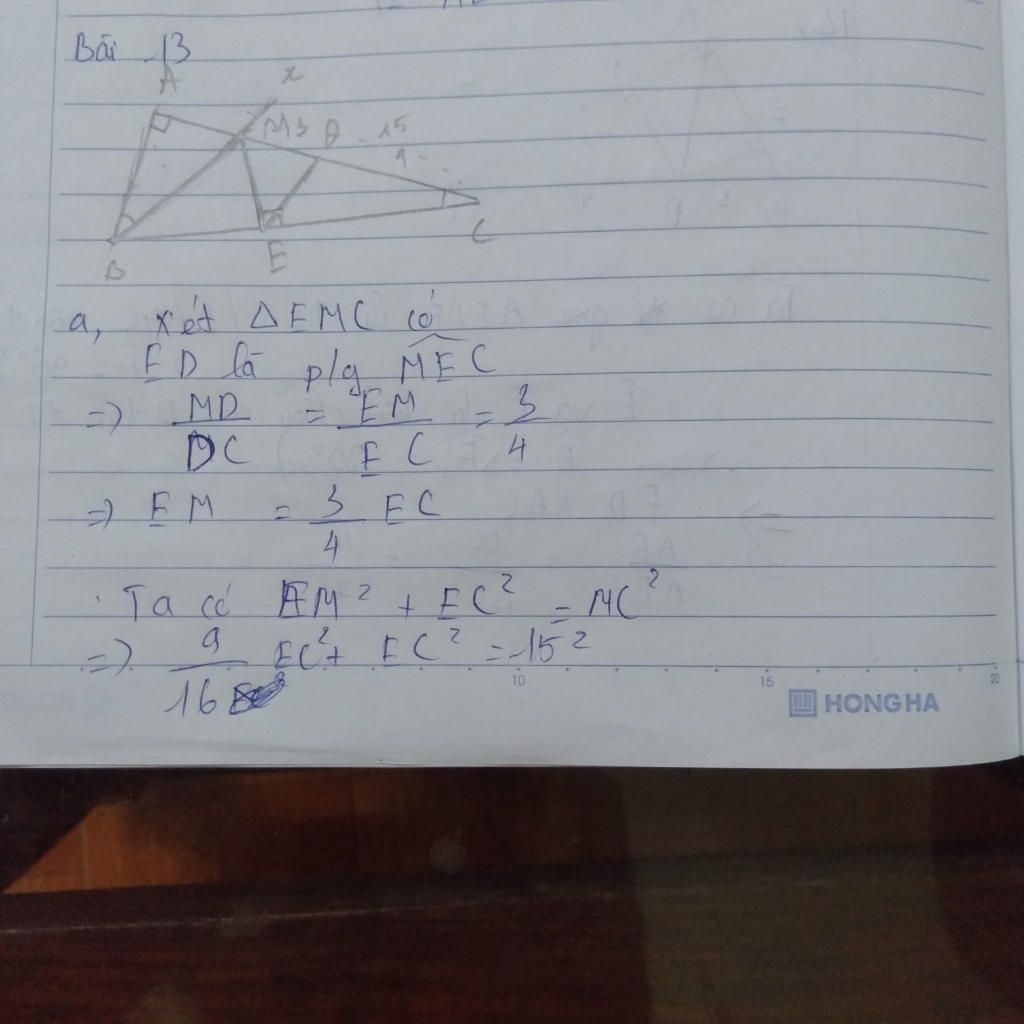 Bài 13
A x
M 3 D 15
4
B E C
a, xét △EMC có
ED là p/g MEC
=> MD/DC = EM/EC = 3/4
=> EM = 3/4 EC
Ta có EM² + EC² = MC²
=> 9/16 EC² + EC² = 15²
10 15 20
HONG HA